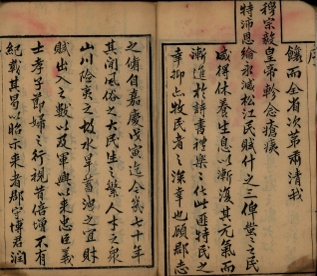 序
而全省次第肅清我
穆宗毅皇帝軫念瘡痍
特沛恩綸永減松江民賦什之三俾茲士民
咸得休養生息以漸復其元氣而
漸進於詩書禮樂之化此匪特民之
幸抑亦牧民者之深幸也顧郡志
之脩自嘉慶戊寅迄今幾七十年
其間風俗之大民生之繁人才之衆
山川險夷之故水旱蓄洩之宜財
賦出入之數以及軍興以來忠臣義
士孝子節婦之行視昔倍增不有
紀載其曷以昭示來者郡守博君潤